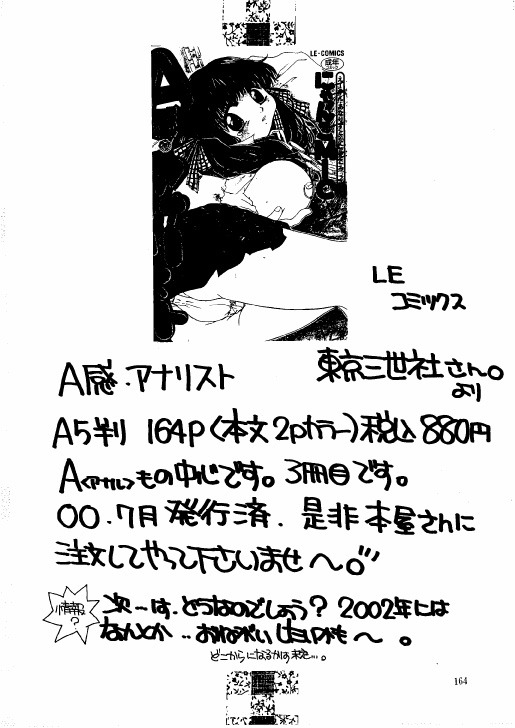 LE-COMICS
成年
LE
コミックス
A感・アナリスト
東京三世社さん。
より
A5判 164P〈本文2pカラー〉税込880円
A〈アナル〉もの中心です。3冊目です。
00.7月発行済、是非本屋さんに
注文してやって下さいませ〜。
情報?
次ーは、どうなのでしょう? 2002年には
なんとか‥
どこからになるかは
164